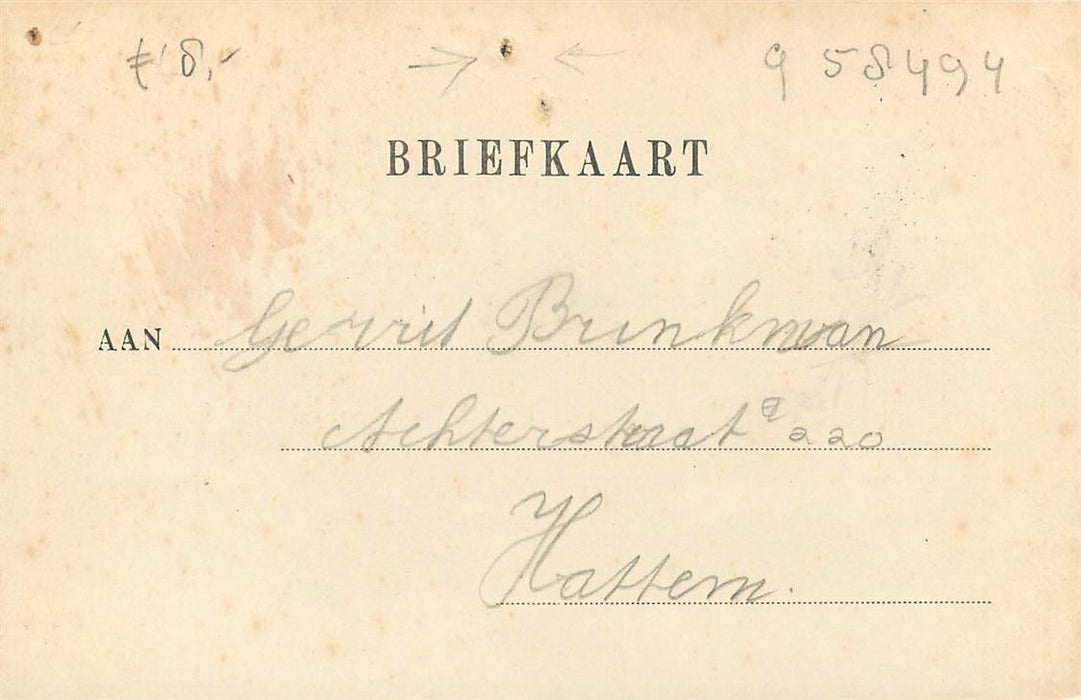 € 8,-
9 58494
BRIEFKAART
AAN Gerrit Brinkman
Achterstraat a 220
Hattem.